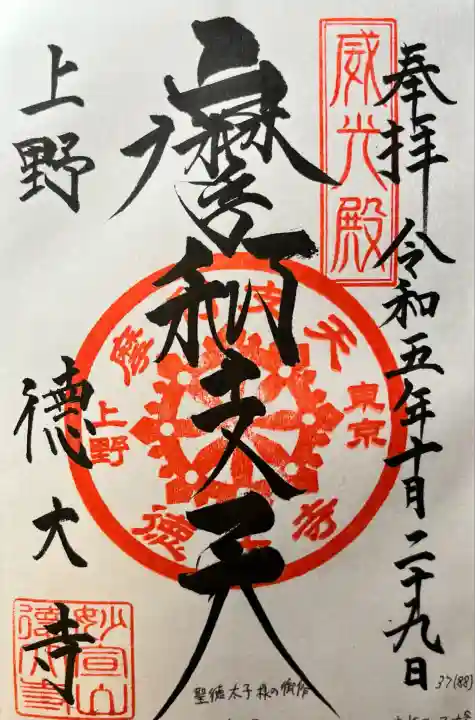 奉拝 令和五年十月二十九日
威光殿
摩利支天
上野 徳大寺
摩利支天
東京
上野
徳大寺
妙宣山
徳大寺
聖徳太子様の御作
37(88)